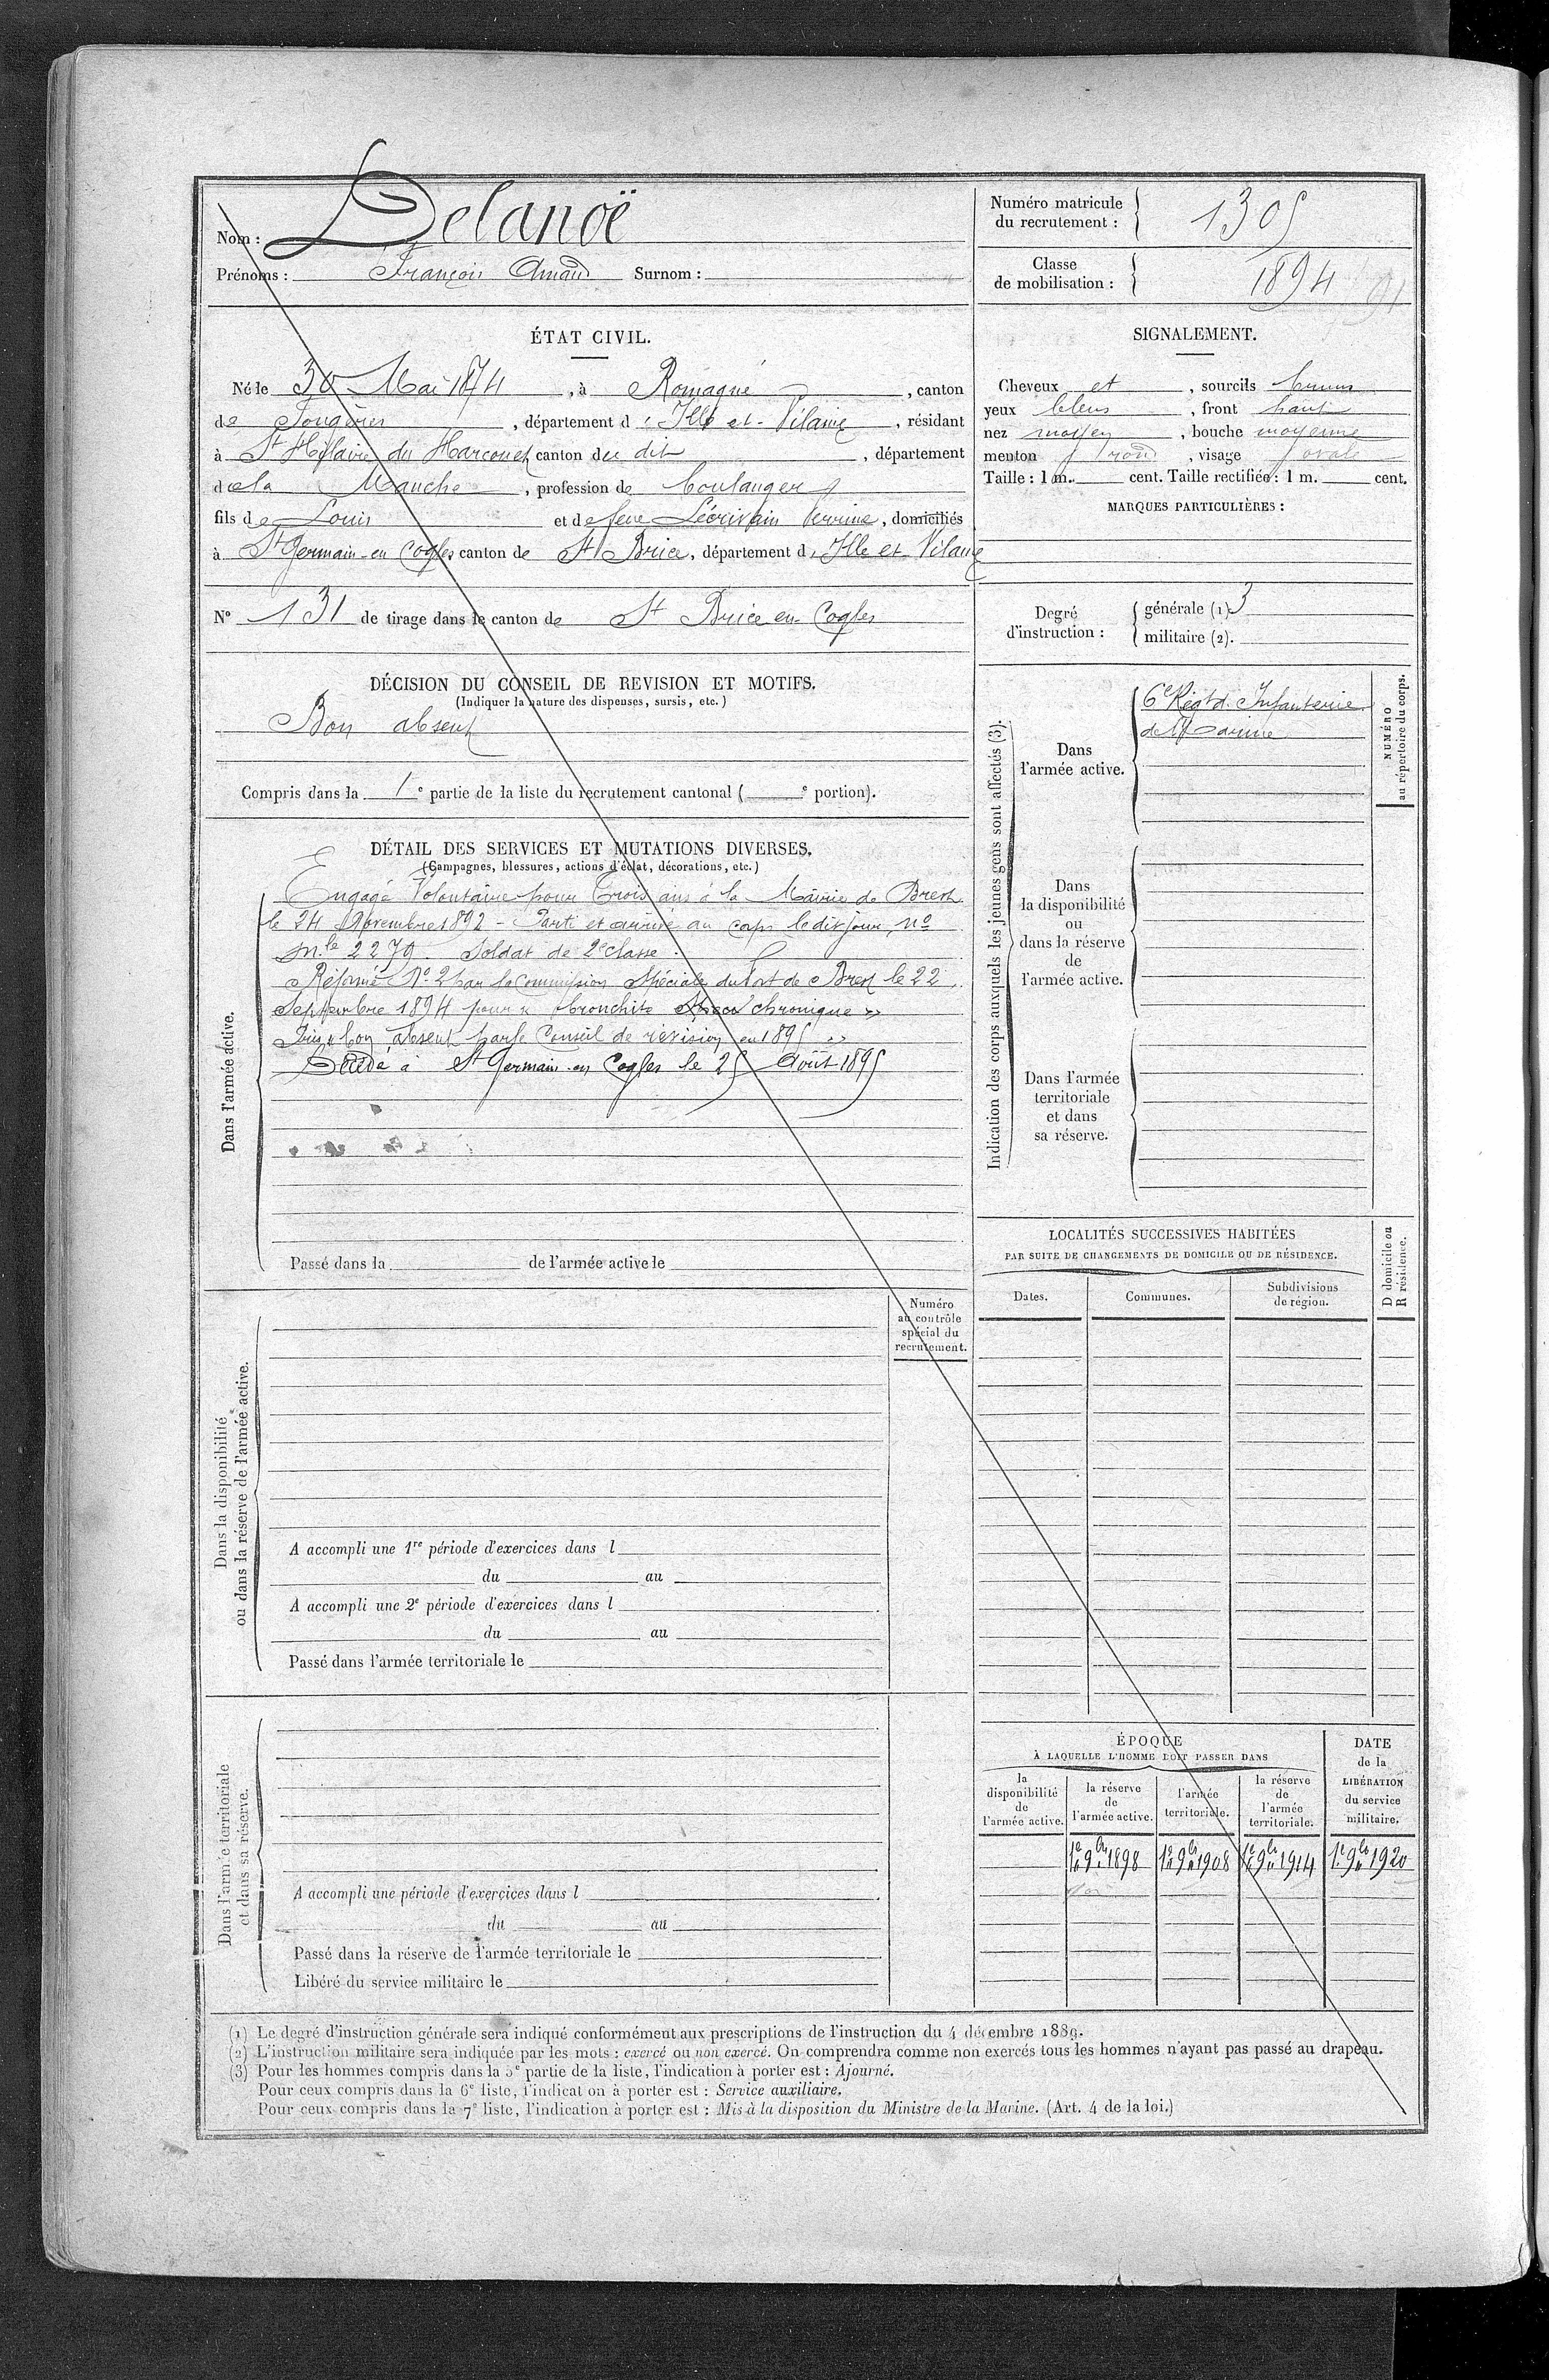 Nom : Delanoë
Prénoms : François Amand Surnom :
Numéro matricule
du recrutement : 1305
Classe
de mobilisation : 1894
ÉTAT CIVIL.
Né le 30 Mai 1874, à Romagné, canton
de Fougères, département d'Ille et-Vilaine, résidant
à St Hilaire du Harcouet canton du dit, département
de la Manche, profession de boulanger
fils de Louis et de feue Lécrivain Perrine, domiciliés
à St Germain-en Cogles canton de St Brice, département d'Ille et-Vilaine
N° 131 de tirage dans le canton de St Brice en-Cogles
SIGNALEMENT.
Cheveux et, sourcils bruns
yeux bleus, front haut
nez moyen, bouche moyenne
menton rond, visage ovale
Taille : 1 m. cent. Taille rectifiée : 1 m. cent.
MARQUES PARTICULIÈRES :
Degré
d'instruction :
générale (1) 3
militaire (2).
DÉCISION DU CONSEIL DE REVISION ET MOTIFS.
(Indiquer la nature des dispenses, sursis, etc.)
Bon absent
Compris dans la 1e partie de la liste du recrutement cantonal ( e portion).
DÉTAIL DES SERVICES ET MUTATIONS DIVERSES.
(Campagnes, blessures, actions d'éclat, décorations, etc.)
Dans l'armée active.
Engagé Volontaire pour Trois ans à la Mairie de Brest
le 24 Novembre 1892 - Parti et arrivé au corps ledit jour, no
mle 2279. Soldat de 2e classe.
Réformé N° 2 par la Commission Spéciale du Port de Brest le 22
Septembre 1894 pour « bronchite chronique »
Pris « bon absent par le Conseil de révision en 1895 »
Décédé à St Germain en Cogles le 25 Août 1895
Passé dans la de l'armée active le
Indication des corps auxquels les jeunes gens sont affectés (3).
Dans
l'armée active.
6e Régt d'Infanterie
de Marine
NUMÉRO
au répertoire du corps.
Dans
la disponibilité
ou
dans la réserve
de
l'armée active.
Dans l'armée
territoriale
et dans
sa réserve.
LOCALITÉS SUCCESSIVES HABITÉES
PAR SUITE DE CHANGEMENTS DE DOMICILE OU DE RÉSIDENCE.
Dates.
Communes.
Subdivisions
de région.
D domicile ou
R résidence.
Dans la disponibilité
ou dans la réserve de l'armée active.
Numéro
au contrôle
spécial du
recrutement.
A accompli une 1re période d'exercices dans l
du au
A accompli une 2e période d'exercices dans l
du au
Passé dans l'armée territoriale le
Dans l'armée territoriale
et dans sa réserve.
A accompli une période d'exercices dans l
du au
Passé dans la réserve de l'armée territoriale le
Libéré du service militaire le
ÉPOQUE
À LAQUELLE L'HOMME DOIT PASSER DANS
la
disponibilité
de
l'armée active.
la réserve
de
l'armée active.
l'armée
territoriale.
la réserve
de
l'armée
territoriale.
DATE
de la
LIBÉRATION
du service
militaire.
1er 9bre 1898 1er 9bre 1908 1er 9bre 1914 1er 9bre 1920
(1) Le degré d'instruction générale sera indiqué conformément aux prescriptions de l'instruction du 4 décembre 1889.
(2) L'instruction militaire sera indiquée par les mots : exercé ou non exercé. On comprendra comme non exercés tous les hommes n'ayant pas passé au drapeau.
(3) Pour les hommes compris dans la 5e partie de la liste, l'indication à porter est : Ajourné.
Pour ceux compris dans la 6e liste, l'indication à porter est : Service auxiliaire.
Pour ceux compris dans la 7e liste, l'indication à porter est : Mis à la disposition du Ministre de la Marine. (Art. 4 de la loi.)